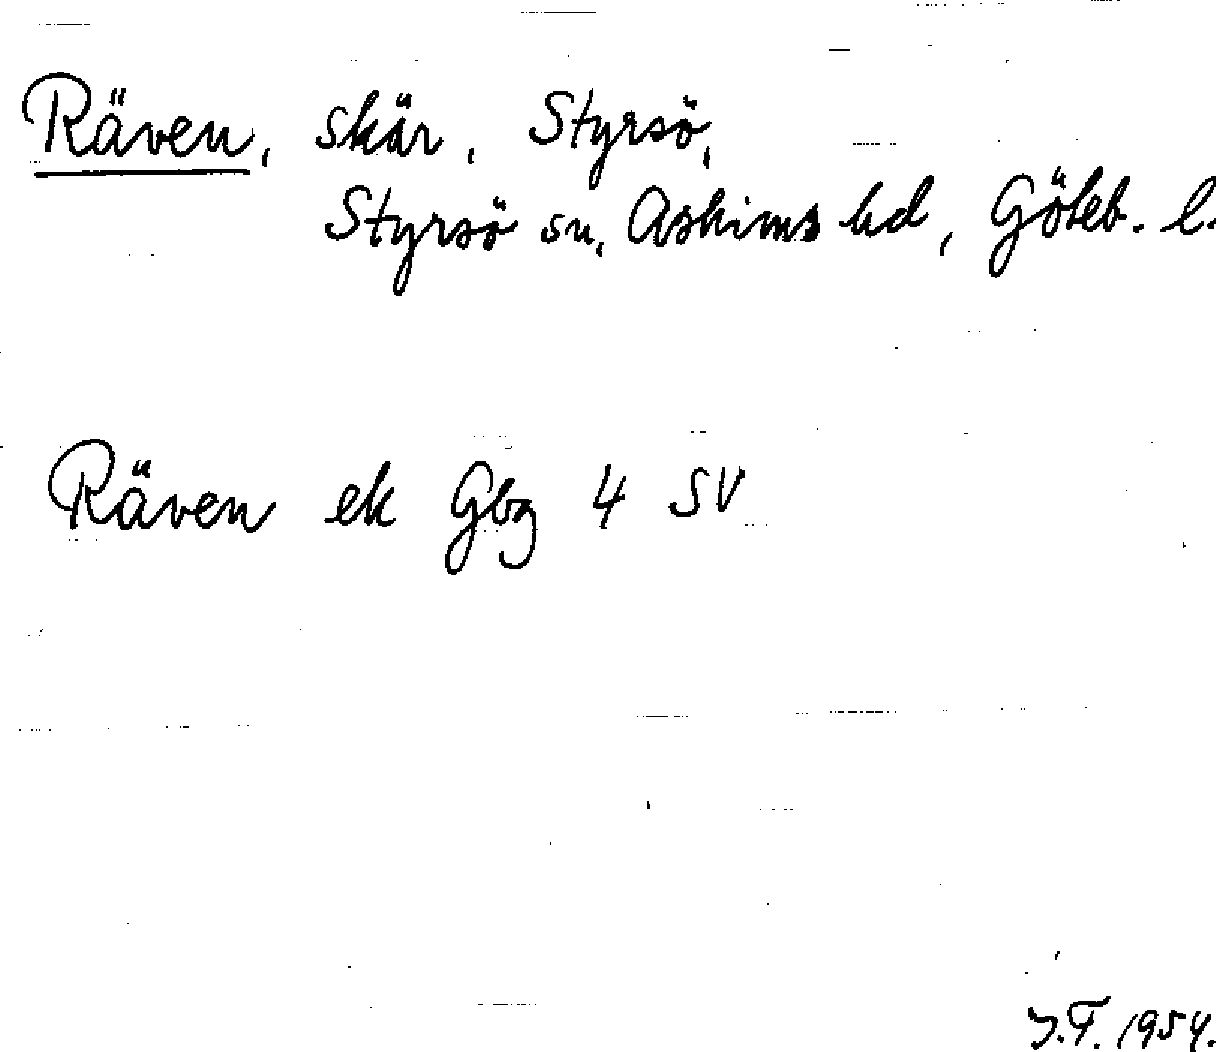 Räven, skär, Styrsö,
Styrsö sn, Askims hd, Göteb. l.
Räven ek Gbg 4 SV
J.F. 1954.